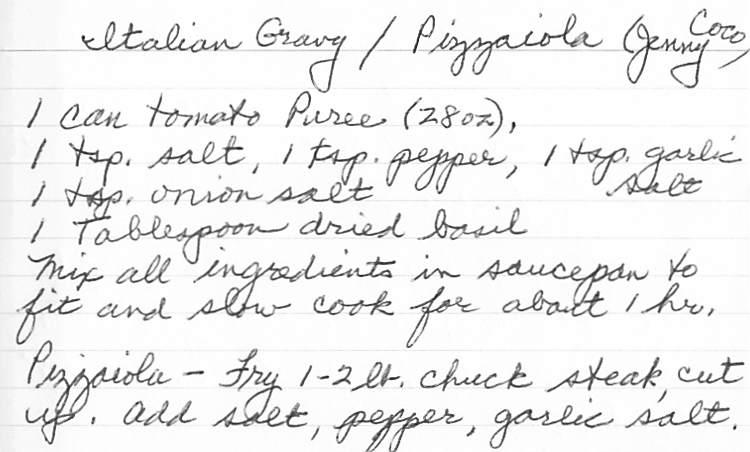 Italian Gravy / Pizzaiola (Jenny Coco)
1 can tomato Puree (28oz),
1 tsp. salt, 1 tsp. pepper, 1 tsp. garlic salt
1 tsp. onion salt
1 Tablespoon dried basil
Mix all ingredients in saucepan to
fit and slow cook for about 1 hr.
Pizzaiola - Fry 1-2 lb. chuck steak, cut
up. Add salt, pepper, garlic salt.